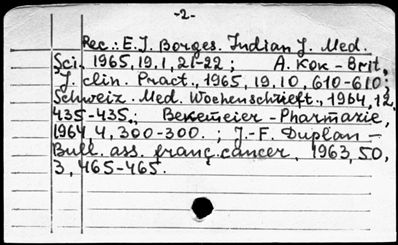 -2-
Rec.: E.J. Borges. Indian J. Med.
Sci. 1965, 19.1, 21-22; A. Kok - Brit.
J. clin. Pract., 1965, 19.10, 610-610;
Schweiz. Med. Wochenschrieft., 1964, 12,
435-435.; Bekemeier - Pharmazie,
1964 4, 300-300. ; J.-F. Duplan -
Bull. ass. franç. cancer, 1963, 50,
3, 465-465.